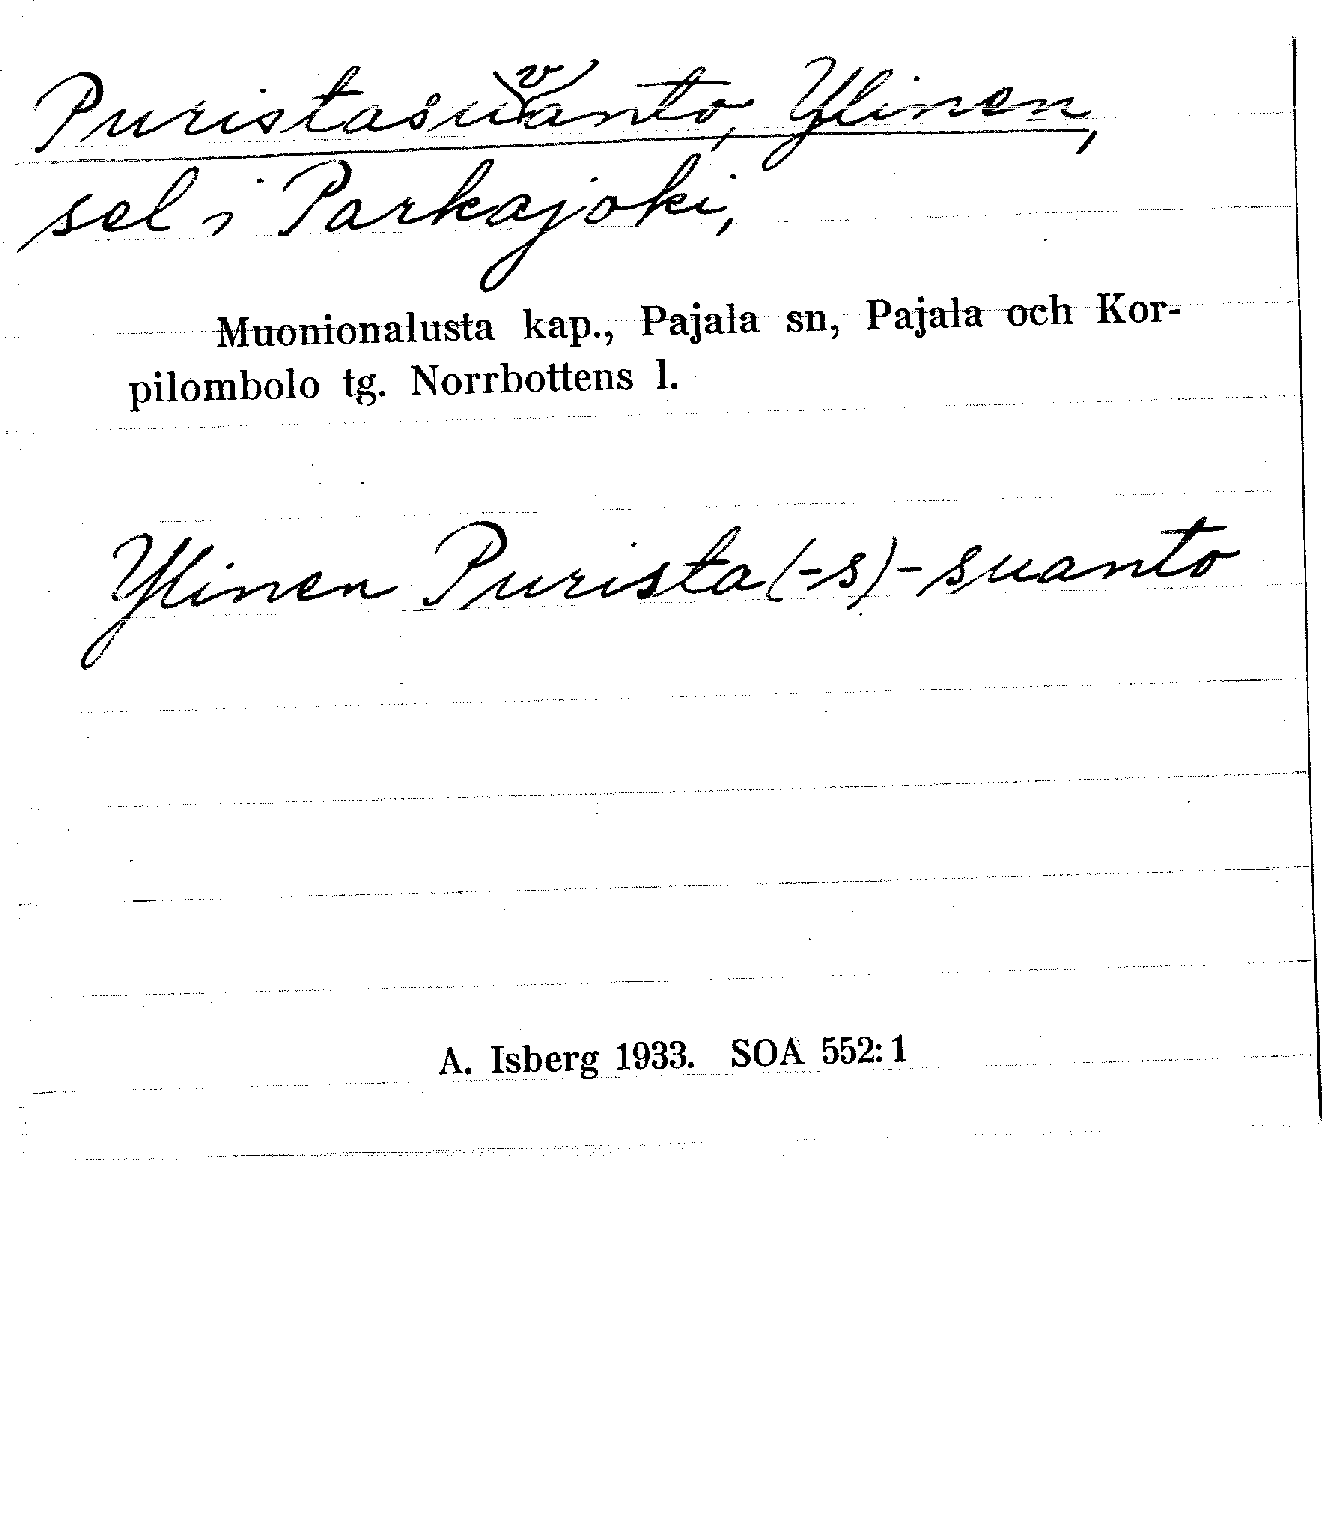 Puristasuvanto, Ylinen,
sel i Parkajoki,
Muonionalusta kap., Pajala sn, Pajala och Kor-
pilombolo tg. Norrbottens l.
Ylinen Purista(-s)-suanto
A. Isberg 1933. SOA 552:1